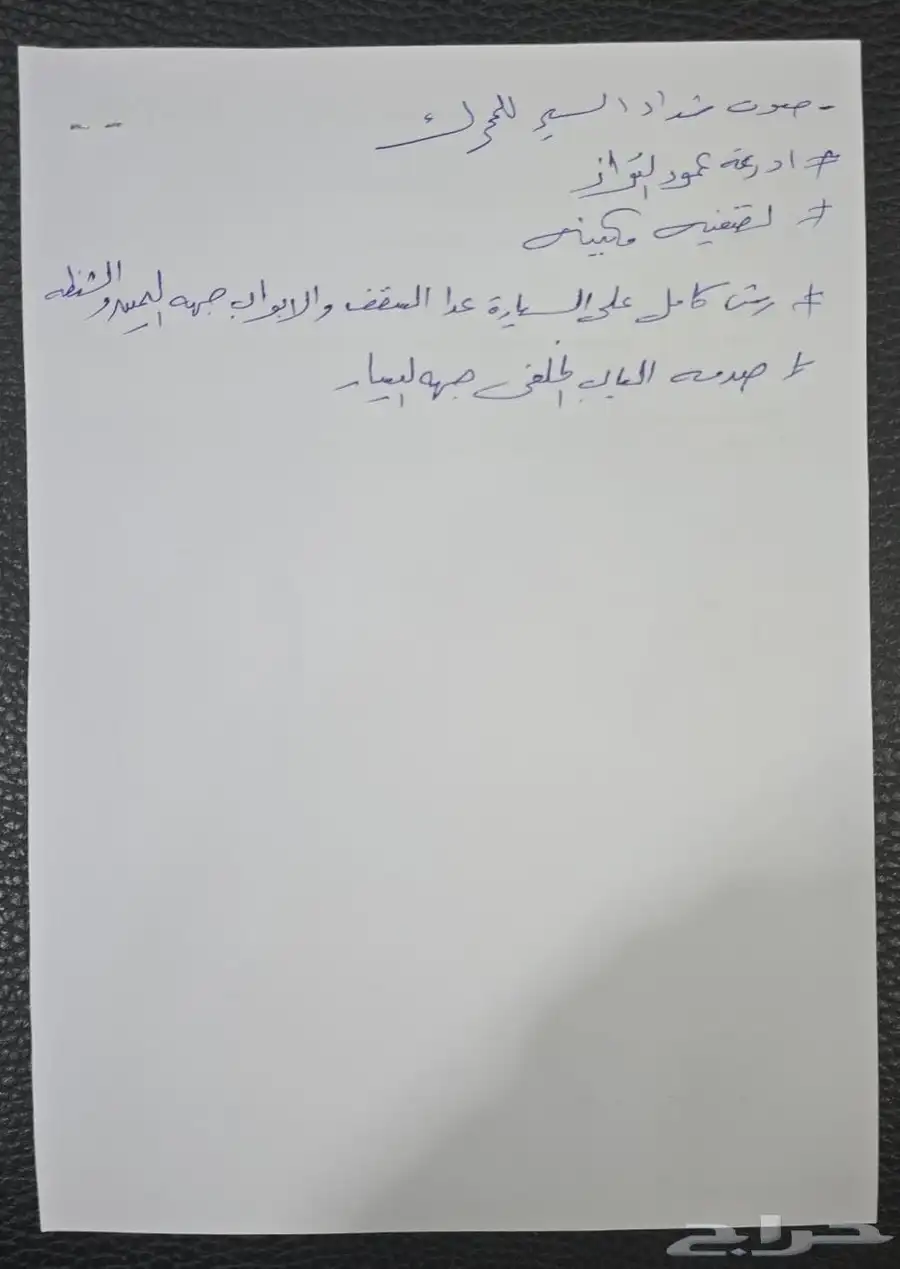 - صوت شداد السير للمحرك
# ادرعة عمود التوازن
# تصفية مكينه
# رش كامل على السيارة عدا السقف والابواب جهه اليمين والشنطه
# صدمه الباب الخلفي جهه اليسار
حراج